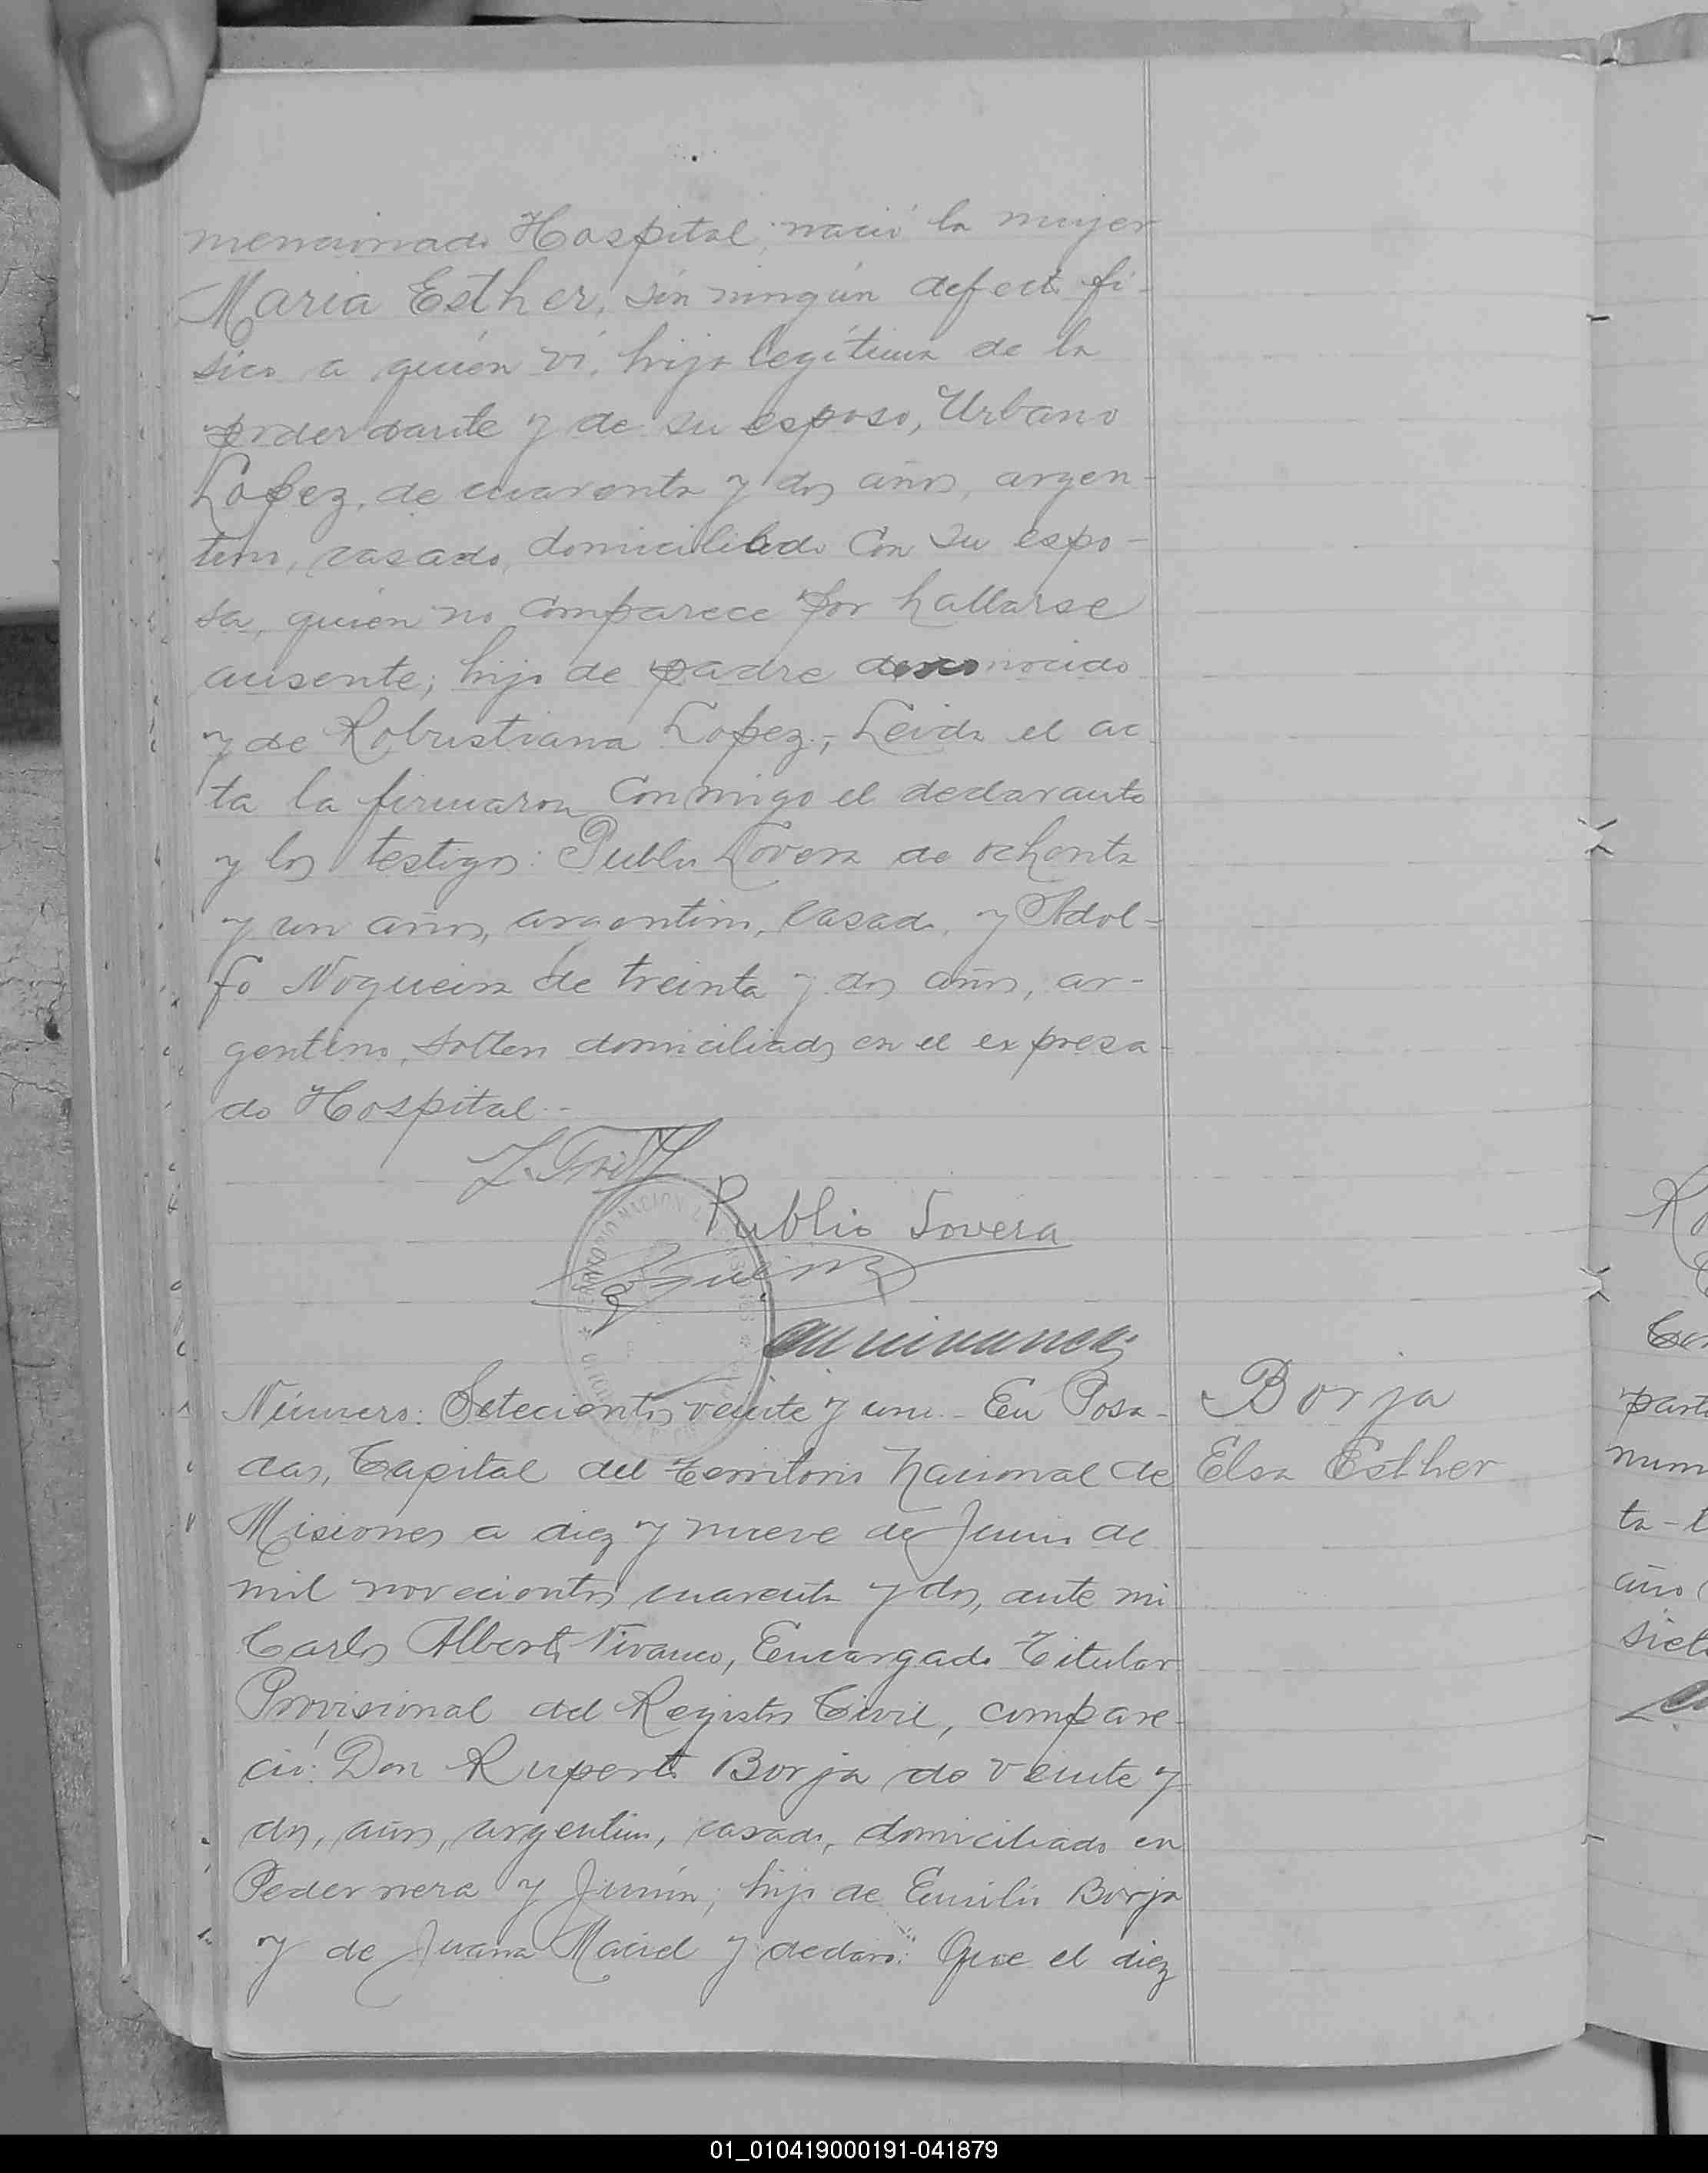 mencionado Hospital, nació la mujer
Maria Esther, sin ningún defecto fí-
sico a quién ví, hija legítima de la
poderdante y de su esposo, Urbano
Lopez, de cuarenta y dos años, argen-
tino, casado, domiciliado con su espo-
sa, quien no comparece por hallarse
ausente; hijo de padre desconocido
y de Robustiana Lopez.- Leida el ac
ta la firmaron conmigo el declarante
y los testigos: Publio Lovera de ochenta
y un años, argentino, casado, y Adol-
fo Nogueira de treinta y dos años, ar-
gentino, soltero domiciliados en el expresa-
do Hospital.-
Publio Lovera
Número: Setecientos veinte y uno.- En Posa-
das, Capital del Territorio Nacional de
Misiones a diez y nueve de Junio de
mil novecientos cuarenta y dos, ante mi
Carlos Alberto Vivanco, Encargado Titular
Provisional del Registro Civil, compare-
ció: Don Ruperto Borja de veinte y
dos, años, argentino, casado, domiciliado en
Pedernera y Junín; hijo de Emilio Borja
y de Juana Maciel y declaró: Que el diez
Borja
Elsa Esther
01_010419000191-041879